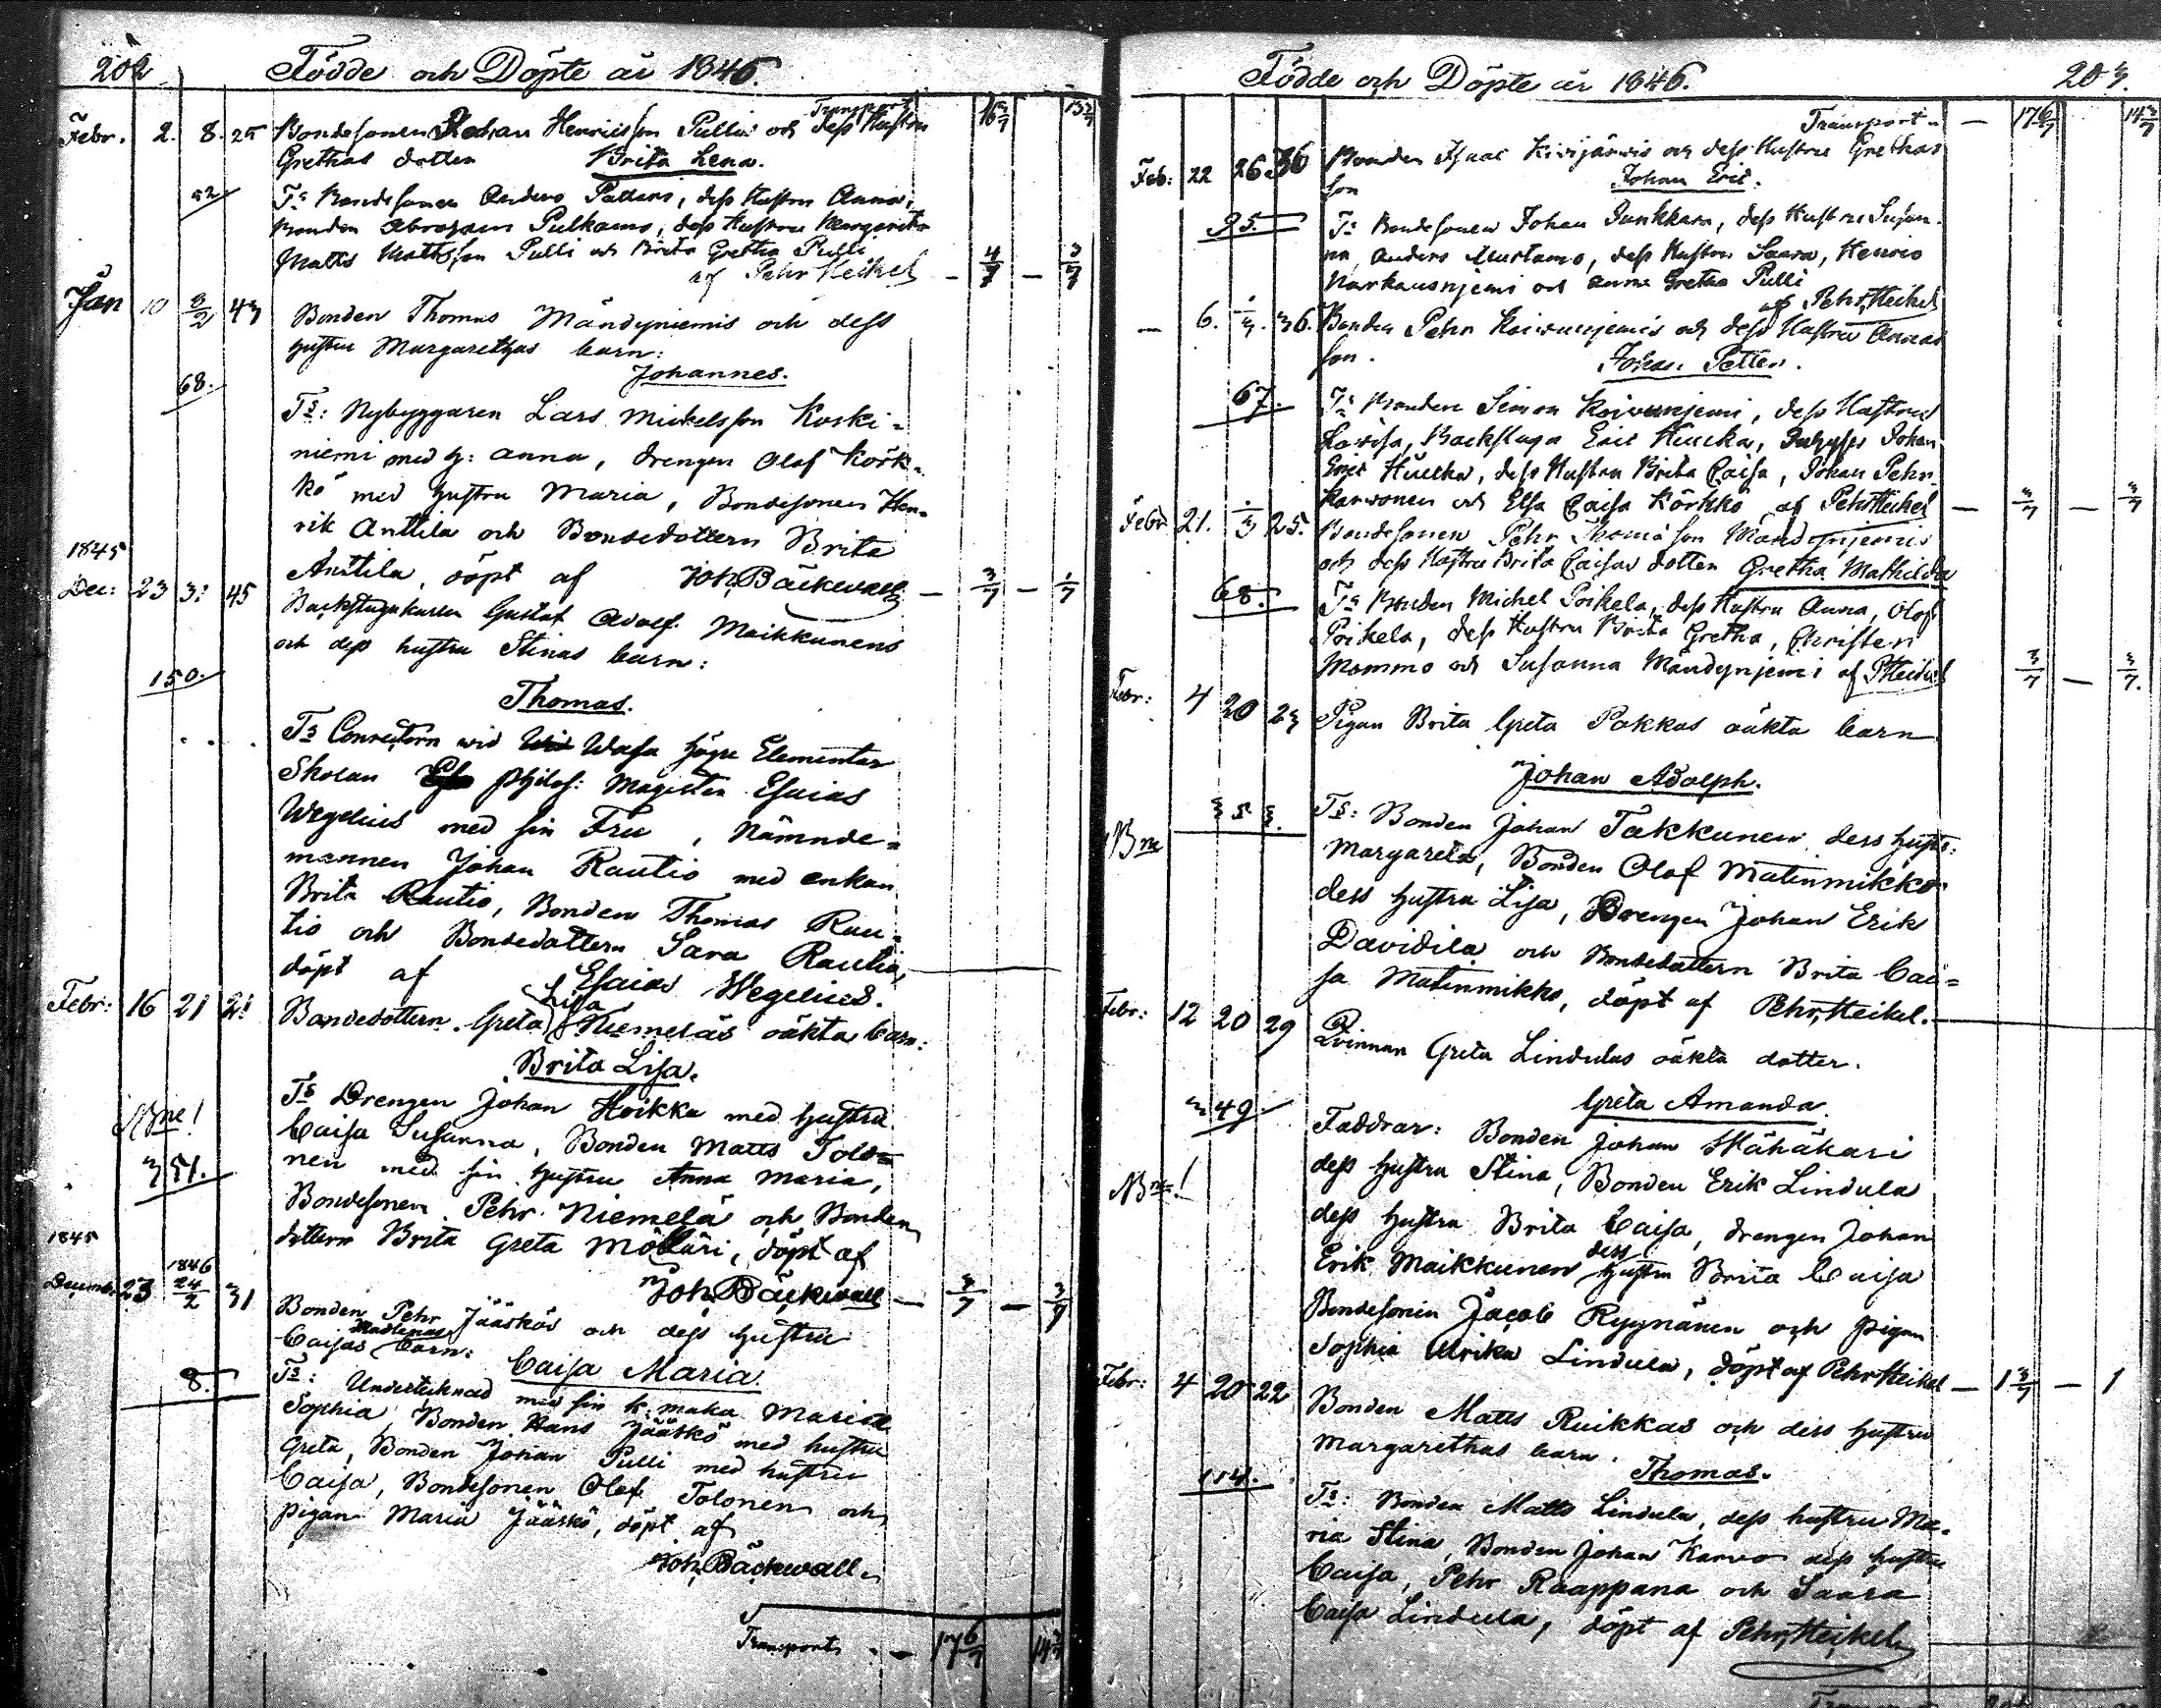 202 Födde och Döpte år 1846.
Transport 16 5/7 13 2/7
Febr. 2. 8. 25 Bondesonen Johan Henricsson Pullis och dess Hustru
Grethas dotter Brita Lena.
52 Ts Bondesonen Anders Pattars, dess Hustru Anna,
Bonden Abraham Pulkamo, dess Hustru Margareta
Matts Mattsson Pulli och Brita Gretha Pulli
af Pehr Heikel — 4/7 — 3/7
Jan 10 3/2 43 Bonden Thomas Mändyniemis och dess
hustru Margarethas barn:
Johannes.
68. Ts: Nybyggaren Lars Mickelsson Koski-
niemi med h: Anna, drengen Olof Körk-
kö med hustru Maria, Bondesonen Hen-
rik Anttila och Bondedottern Brita
1845
Anttila, döpt af Joh. Bäckwall — 3/7 — 1/7
Dec: 23 3: 45 Backstugukarlen Gustaf Adolf Maikkunens
och dess hustru Stinas barn:
150. Thomas.
Ts Conrectorn wid Wasa högre Elementar
Skolan philos: Magister Esaias
Wegelius med sin Fru, Nämnde-
mannen Johan Rautio med enkan
Brita Rautio, Bonden Thomas Rau-
tio och Bondedottern Sara Rautio,
döpt af Esaias Wegelius.
Febr: 16 21 21 Bondedottern Greta Lisa Niemeläs oäkta barn:
Brita Lisa.
NB ne! Ts Drengen Johan Hoikka med hustru
Caisa Susanna, Bonden Matts Tolo-
351. nen med sin hustru Anna Maria,
Bondesonen Pehr Niemelä och Bonde
dottern Brita Greta Möläri, döpt af
Joh. Bäckwall — 3/7 — 3/7
1845 1846
Decemb: 23 24/2 31 Bonden Pehr Jääskös och dess hustru
Caisas Madlenas barn: Caisa Maria.
8. Ts: Undertecknad med sin k. maka Maria
Sophia, Bonden Hans Jääskö med hustru
Greta, Bonden Johan Pulli med hustru
Caisa, Bondesonen Olof Tolonen och
pigan Maria Jääskö, döpt af
Joh. Bäckwall
Transport — 17 6/7 14 3/7
Födde och Döpte år 1846. 203.
Transport — 17 6/7 14 3/7
Feb: 22 26 36 Bonden Isaac Kivijärwis och dess Hustru Grethas
son Johan Eric.
95. Ts Bondesonen Johan Junkkara, dess Hustru Susan-
na, Anders Mustamo, dess Hustru Saara, Henric
Narkausnjemi och Anna Gretha Pulli
af Pehr Heikel
— 6. 1/3. 36. Bonden Pehr Koivunjemis och dess Hustru Annas
son. Johan Petter.
67. Ts Bonden Simon Koivunjemi, dess Hustru
Lovisa, Backstuga Eric Hiucka, Inhyses Johan
Eric Hiucka, dess Hustru Brita Caisa, Johan Pehr
Karvonen och Elsa Caisa Körkkö af Pehr Heikel — 3/7 — 3/7
Febr 21. 1/3 25. Bondesonen Pehr Thomasson Mändynjemis
och dess Hustru Brita Caisas dotter Gretha Mathilda
68. Ts Bonden Michel Poikela, dess Hustru Anna, Olof
Poikela, dess Hustru Brita Gretha, Christer
Mommo och Susanna Mändynjemi af PHeikel 3/7 — 3/7.
Febr: 4 20 23 Pigan Brita Greta Pokkas oäkta barn
Johan Adolph.
353. Ts: Bonden Johan Takkunen, dess hustr:
NB ne Margareta, Bonden Olof Matinmikko
dess hustru Lisa, Drengen Johan Erik
Davidila och Bondedottern Brita Cai-
sa Matinmikko, döpt af Pehr Heikel.
Febr: 12 20 29 Qvinnan Greta Lindulas oäkta dotter.
349 Greta Amanda.
Faddrar: Bonden Johan Skähäkari
NB ne! dess hustru Stina, Bonden Erik Lindula
dess hustru Brita Caisa, drengen Johan
Erik Maikkunen dess hustru Brita Caisa
Bondesonen Jacob Ryynänen och pigan
Sophia Ulrika Lindula, döpt af Pehr Heikel — 1 3/7 — 1
Febr: 4 20 22 Bonden Matts Ruikkas och dess hustru
Margarethas barn. Thomas.
114. Ts: Bonden Matts Lindula, dess hustru Ma-
ria Stina, Bonden Johan Karvo dess hustru
Caisa, Pehr Raappana och Saara
Caisa Lindula, döpt af Pehr Heikel